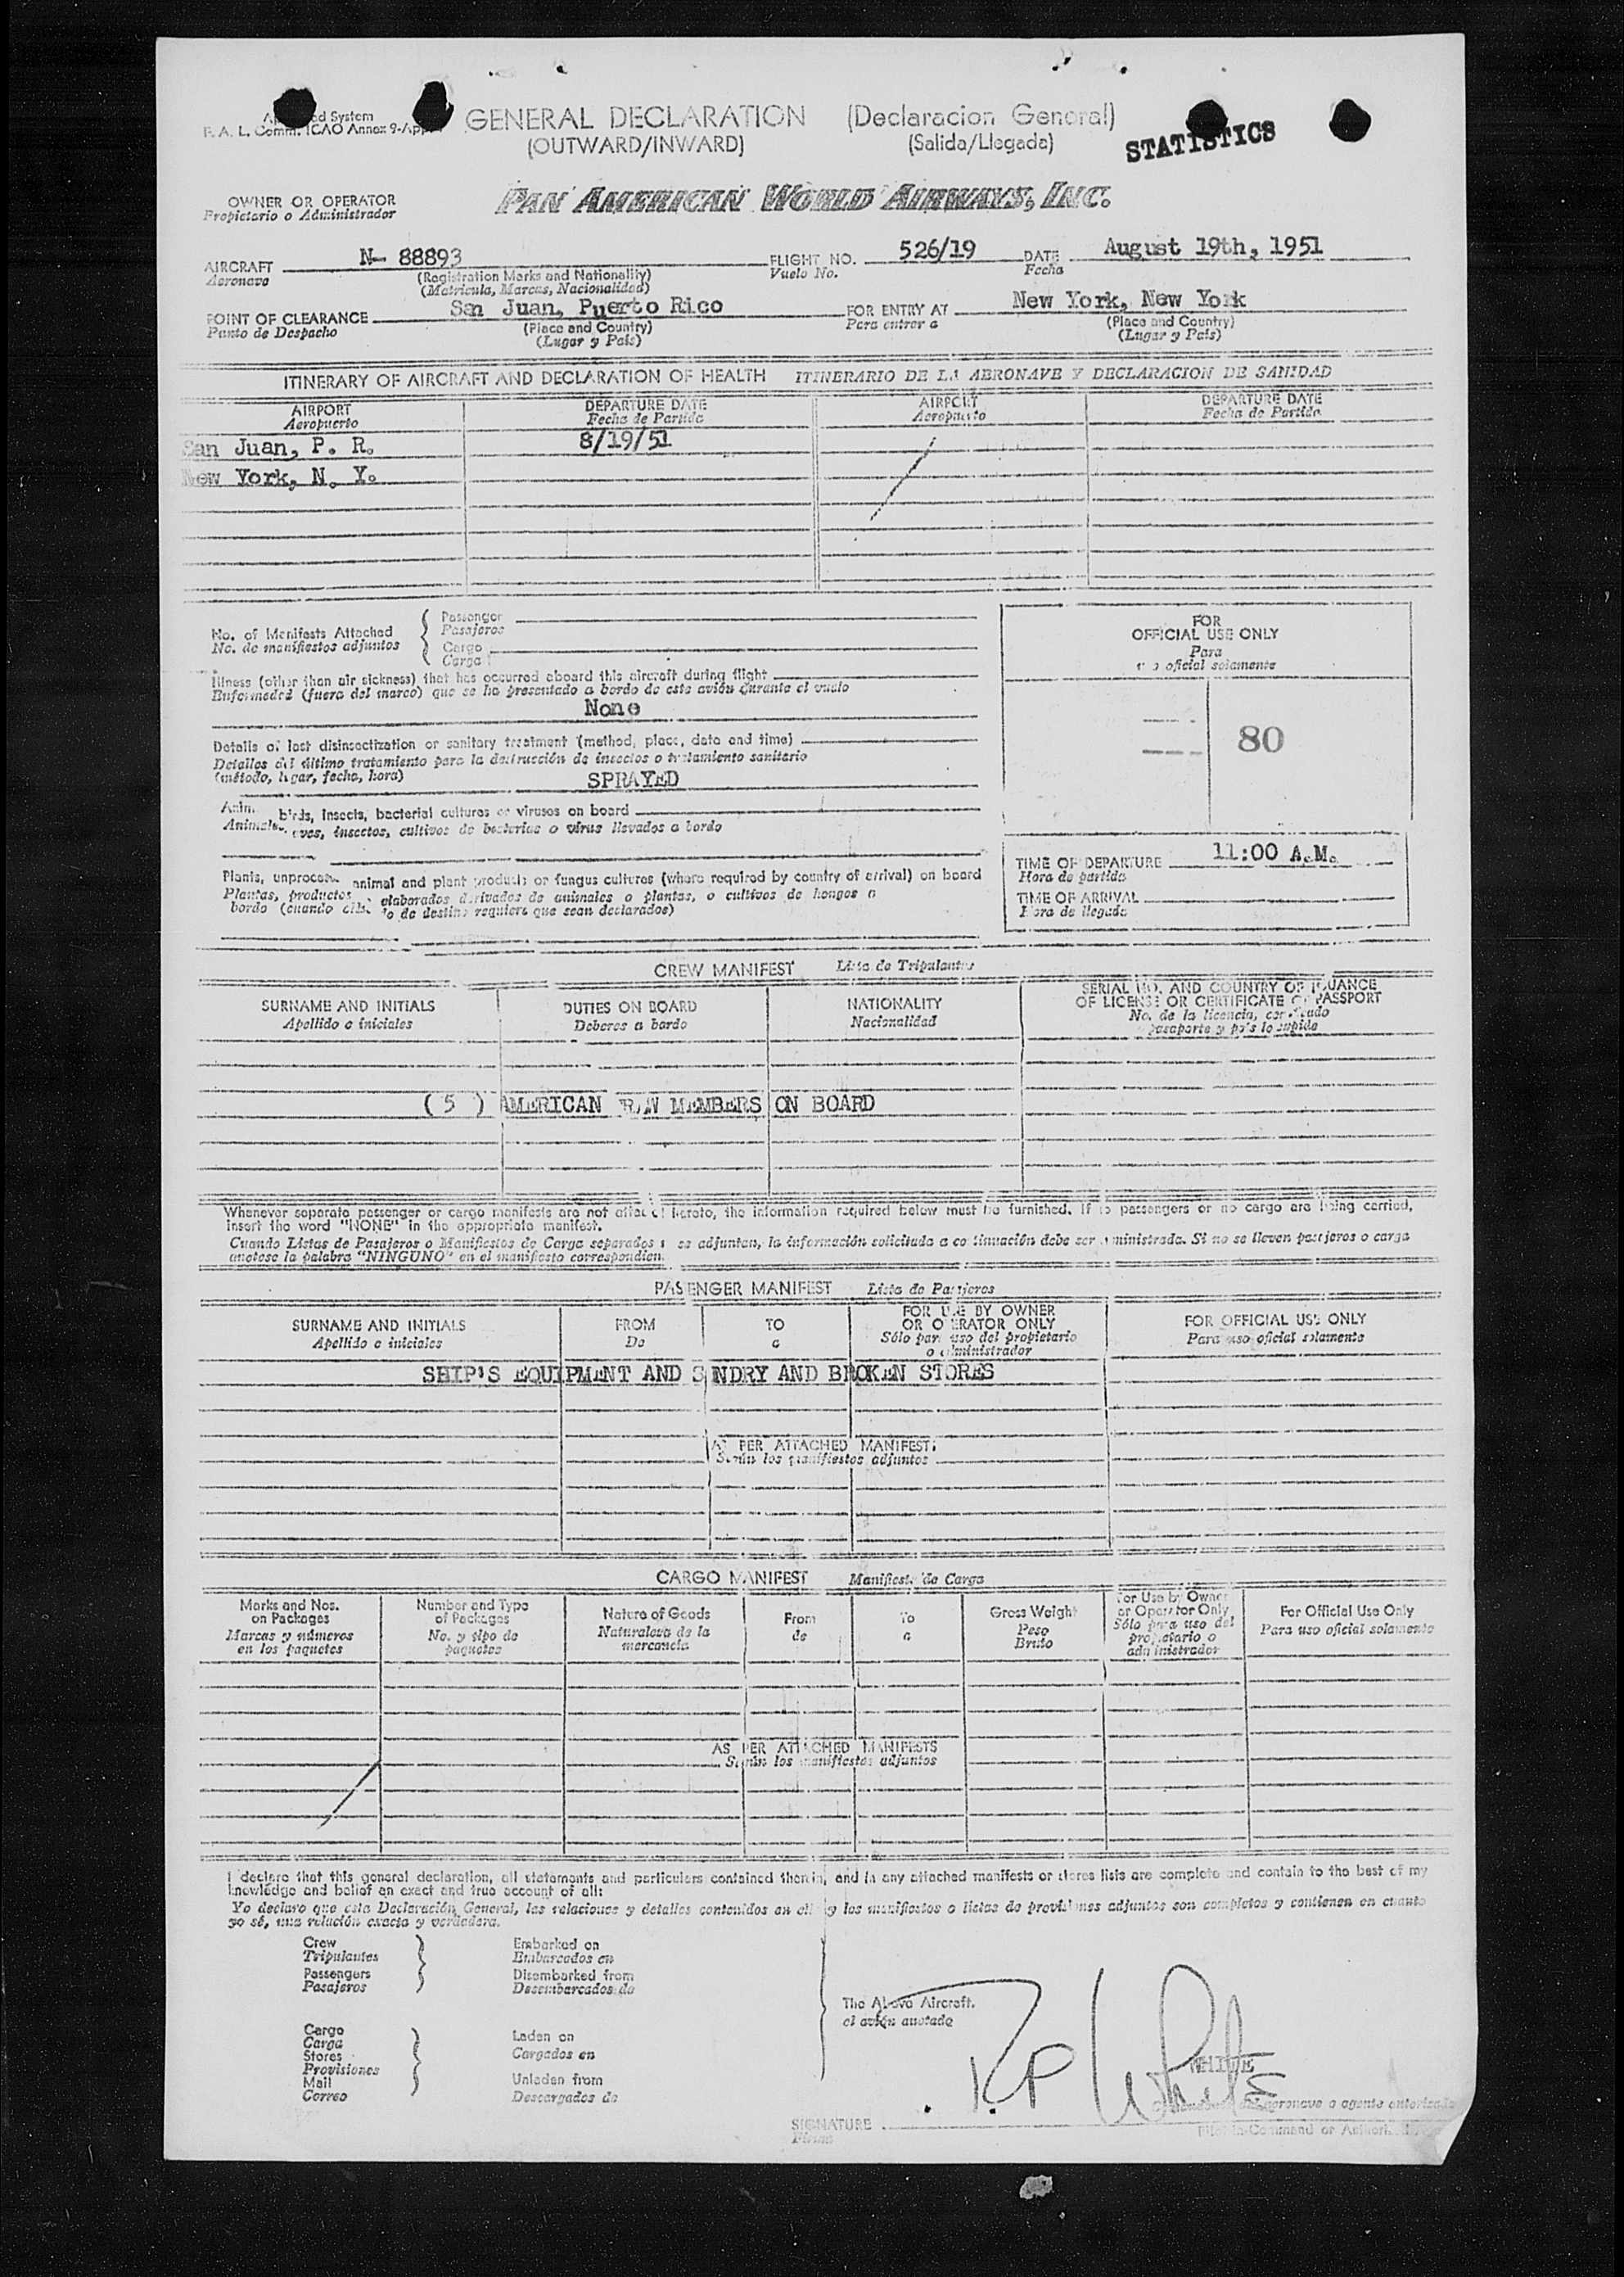 GENERAL DECLARATION (Declaracion General)
F. A. L. Comm. ICAO Annex 9-App.
(OUTWARD/INWARD) (Salida/Llegada)
STATISTICS
OWNER OR OPERATOR
Propietario o Administrador
PAN AMERICAN WORLD AIRWAYS, INC.
AIRCRAFT N- 88893 FLIGHT NO. 526/19 DATE August 19th, 1951
Aeronave (Registration Marks and Nationality) Vuelo No. Fecha
(Matricula, Marcas, Nacionalidad)
POINT OF CLEARANCE San Juan, Puerto Rico FOR ENTRY AT New York, New York
Punto de Despacho (Place and Country) Para entrar a (Place and Country)
(Lugar y País) (Lugar y País)
ITINERARY OF AIRCRAFT AND DECLARATION OF HEALTH ITINERARIO DE LA AERONAVE Y DECLARACION DE SANIDAD
AIRPORT DEPARTURE DATE AIRPORT DEPARTURE DATE
Aeropuerto Fecha de Partida Aeropuerto Fecha de Partida
San Juan, P. R. 8/19/51
New York, N. Y.
No. of Manifests Attached
No. de manifiestos adjuntos
Passenger
Pasajeros
Cargo
Carga
Illness (other than air sickness) that has occurred aboard this aircraft during flight
Enfermedad (fuera del mareo) que se ha presentado a bordo de este avión durante el vuelo
None
Details of last disinsectization or sanitary treatment (method, place, date and time)
Detalles del último tratamiento para la destrucción de insectos o tratamiento sanitario
(método, lugar, fecha, hora)
SPRAYED
birds, insects, bacterial cultures or viruses on board
Animales, aves, insectos, cultivos de bacterias o virus llevados a bordo
Plants, animal and plant products or fungus cultures (where required by country of arrival) on board
Plantas, productos elaborados derivados de animales o plantas, o cultivos de hongos a
bordo (cuando de destino requiere que sean declarados)
FOR
OFFICIAL USE ONLY
Para
uso oficial solamente
80
TIME OF DEPARTURE 11:00 A.M.
Hora de partida
TIME OF ARRIVAL
Hora de llegada
CREW MANIFEST Lista de Tripulantes
SURNAME AND INITIALS DUTIES ON BOARD NATIONALITY SERIAL NO. AND COUNTRY OF ISSUANCE
OF LICENSE OR CERTIFICATE OR PASSPORT
Apellido e iniciales Deberes a bordo Nacionalidad No. de la licencia, certificado
( 5 ) AMERICAN CREW MEMBERS ON BOARD
Whenever separate passenger or cargo manifests are not attached hereto, the information required below must be furnished. If no passengers or no cargo are being carried,
insert the word "NONE" in the appropriate manifest.
Cuando Listas de Pasajeros o Manifiestos de Carga separados se adjuntan, la información solicitada a continuación debe ser ministrada. Si no se lleven pasajeros o carga
anotese la palabra "NINGUNO" en el manifiesto correspondien.
PASSENGER MANIFEST Lista de Pasajeros
SURNAME AND INITIALS FROM TO FOR USE BY OWNER
OR OPERATOR ONLY FOR OFFICIAL USE ONLY
Apellido e iniciales De a Sólo para uso del propietario
o administrador Para uso oficial solamente
SHIP'S EQUIPMENT AND SUNDRY AND BROKEN STORES
AS PER ATTACHED MANIFESTS
Según los manifiestos adjuntos
CARGO MANIFEST Manifiesto de Carga
Marks and Nos.
on Packages
Marcas y números
en los paquetes
Number and Type
of Packages
No. y tipo de
paquetes
Nature of Goods
Naturaleza de la
mercancia
From
de
To
a
Gross Weight
Peso
Bruto
For Use by Owner
or Operator Only
Sólo para uso del
propietario o
administrador
For Official Use Only
Para uso oficial solamente
AS PER ATTACHED MANIFESTS
Según los manifiestos adjuntos
I declare that this general declaration, all statements and particulars contained therein, and in any attached manifests or stores lists are complete and contain to the best of my
knowledge and belief an exact and true account of all:
Yo declaro que esta Declaración General, las relaciones y detalles contenidos en el y los manifiestos o listas de provisiones adjuntos son completos y contienen en cuanto
yo sé, una relación exacta y verdadera.
Crew Embarked on
Tripulantes Embarcados en
Passengers Disembarked from
Pasajeros Desembarcados de
The Above Aircraft.
el avión anotado
Cargo
Carga
Stores
Provisiones
Mail
Correo
Laden on
Cargados en
Unladen from
Descargados de
R.P. White
WHITE
aeronave o agente autorizado
SIGNATURE
Firma
Pilot-in-Command or